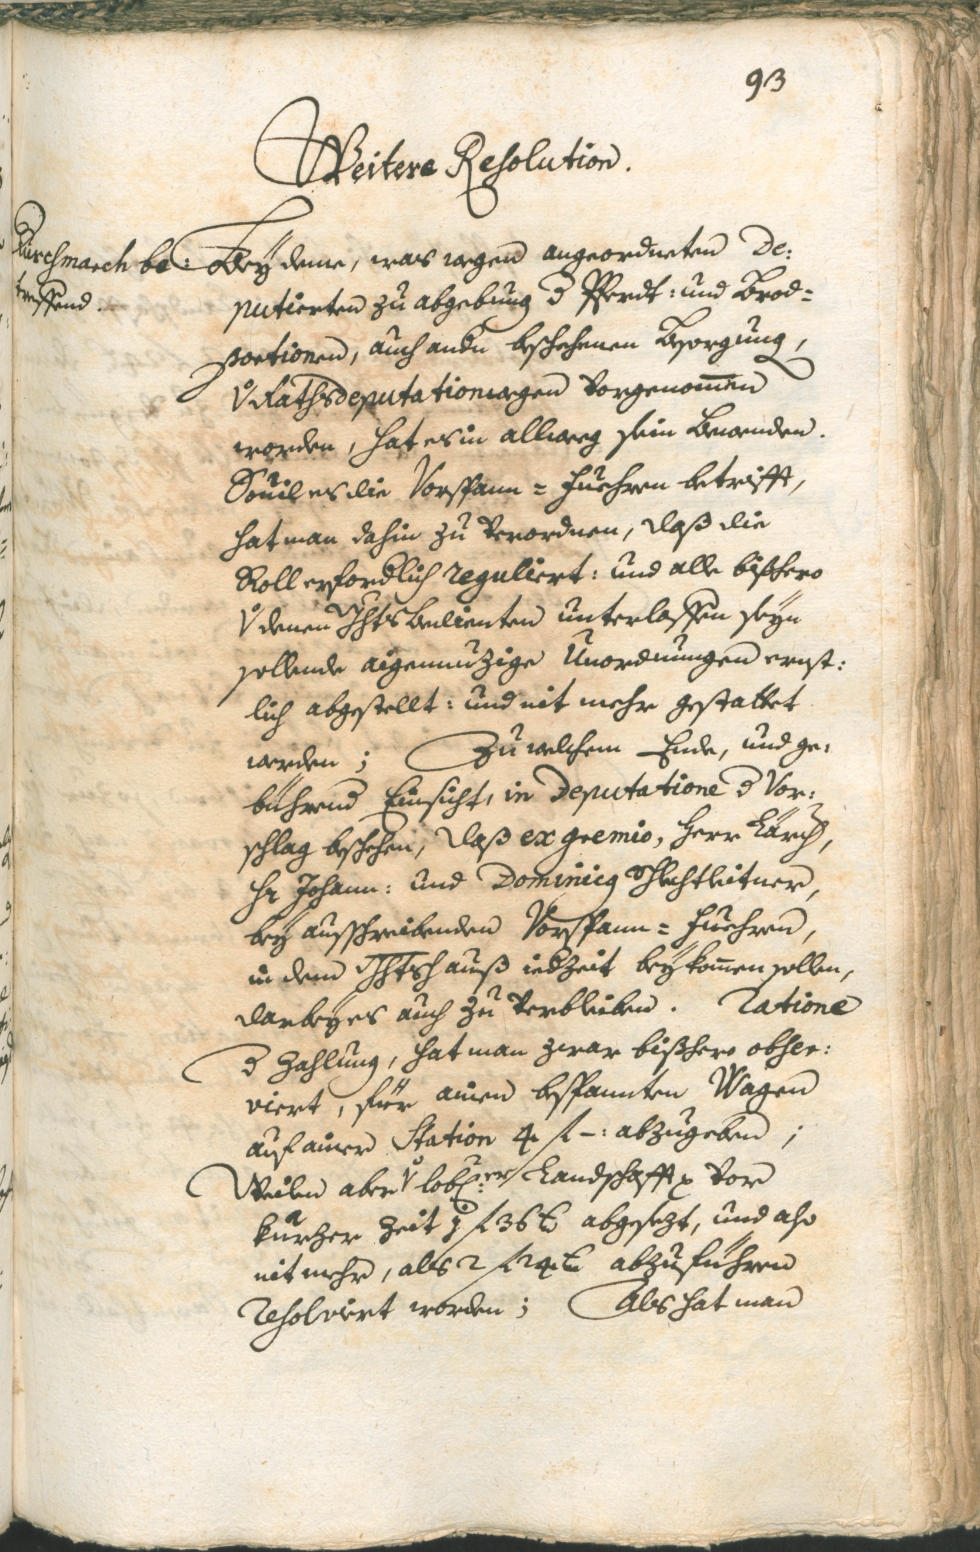 93
Weitere Resolution.
Durchmarch be:
treffend.
Bey deme, was wegen angeordneten De:
putierten zu abgebung d Pferdt: und Brod=
portionen, auch andn beschehenen Besorgung,
v Rathsdeputationwegen vorgenomen
worden, hat es in allweg sein Bewenden.
Souil es die Vorspann= Fuehren betrifft,
hat man dahin zu verordnen, daß die
Roll erfordlich reguliert: und alle bißhero
v denen Ghts Bedienten unterlassen seyn
sollende aigennuzige Unordnungen ernst:
lich abgestellt: und nit mehr gestattet
werden; Zu welchem Ende, und ge:
bührend Einsicht, in Deputatione d Vor:
schlag beschehen, daß ex gremio, Herr Lärch,
Hr Johann: und Dominicq Schlechtleitner,
bey ausschreibenden Vorspann= Fuehren,
in dem Ghtshauß iedzeit beykomen sollen,
darbey es auch zu verbleiben. Ratione
d Zahlung, hat man zwar bißhero obser:
viert, für ainen bespannten Wagen
auf ainer Station 4 f –: abzugeben;
Weilen aber v lobl:er Landschafft vor
kurzer Zeit 1 f 36 x abgesezt, und also
nit mehr, als 2 f 24 x abzuführen
resolviert worden; Als hat man